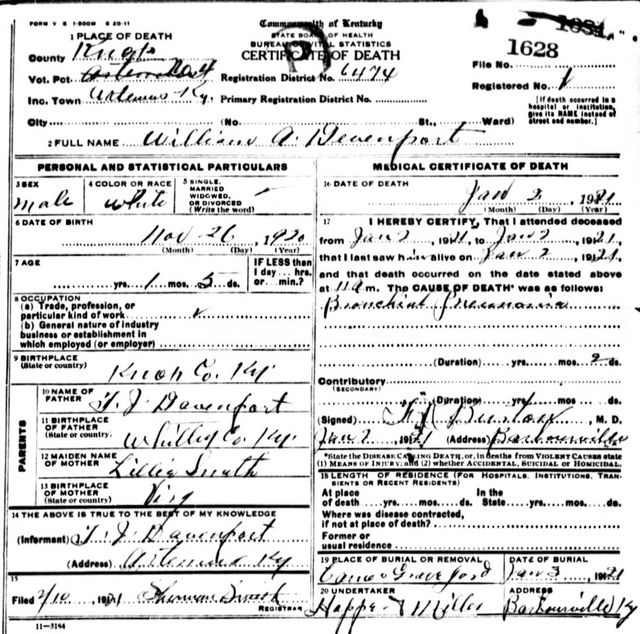 FORM V S 1-500M 6 20-11
Commonwealth of Kentucky
STATE BOARD OF HEALTH
BUREAU OF VITAL STATISTICS
CERTIFICATE OF DEATH
1628
1 PLACE OF DEATH
County Knox
Vot. Pct. Registration District No. 6474
File No.
Registered No. 1
Inc. Town Artemus Ky. Primary Registration District No.
[If death occurred in a hospital or institution, give its NAME instead of street and number.]
City (No. St., Ward)
2 FULL NAME William A. Devenport
PERSONAL AND STATISTICAL PARTICULARS
3 SEX
male
4 COLOR OR RACE
white
5 SINGLE, MARRIED WIDOWED, OR DIVORCED (Write the word)
6 DATE OF BIRTH
Nov 26, 1920
(Month) (Day) (Year)
7 AGE
yrs. 1 mos. ds.
IF LESS than 1 day hrs. or min.?
8 OCCUPATION
(a) Trade, profession, or particular kind of work
(b) General nature of industry business or establishment in which employed (or employer)
9 BIRTHPLACE
(State or country)
Knox Co. Ky
PARENTS
10 NAME OF FATHER
T. J. Davenport
11 BIRTHPLACE OF FATHER
(State or country)
Whitley Co. Ky
12 MAIDEN NAME OF MOTHER
Lillie Smith
13 BIRTHPLACE OF MOTHER
(State or country)
14 THE ABOVE IS TRUE TO THE BEST OF MY KNOWLEDGE
(Informant) T. J. Davenport
(Address) Artemus Ky
15
Filed 2/10, 1921
REGISTRAR
11-3184
MEDICAL CERTIFICATE OF DEATH
16 DATE OF DEATH
Jan 3, 1921
(Month) (Day) (Year)
17 I HEREBY CERTIFY, That I attended deceased
from Jan 2, 1921, to Jan 2, 1921,
that I last saw him alive on Jan 2, 1921,
and that death occurred on the date stated above
at 11 am. The CAUSE OF DEATH* was as follows:
Bronchial Pneumonia
(Duration) yrs. mos. 2 ds.
Contributory
(SECONDARY)
(Duration) yrs. mos. ds.
(Signed) M. D.
Jan 2, 1921 (Address) Barbourville
*State the DISEASE CAUSING DEATH, or, in deaths from VIOLENT CAUSES state (1) MEANS OF INJURY; and (2) whether ACCIDENTAL, SUICIDAL or HOMICIDAL.
18 LENGTH OF RESIDENCE (FOR HOSPITALS, INSTITUTIONS, TRANSIENTS OR RECENT RESIDENTS)
At place of death yrs. mos. ds. In the State yrs. mos. ds.
Where was disease contracted, if not at place of death?
Former or usual residence
19 PLACE OF BURIAL OR REMOVAL
DATE OF BURIAL
Jan 3, 1921
20 UNDERTAKER
Hopper & Miller
ADDRESS
Barbourville Ky